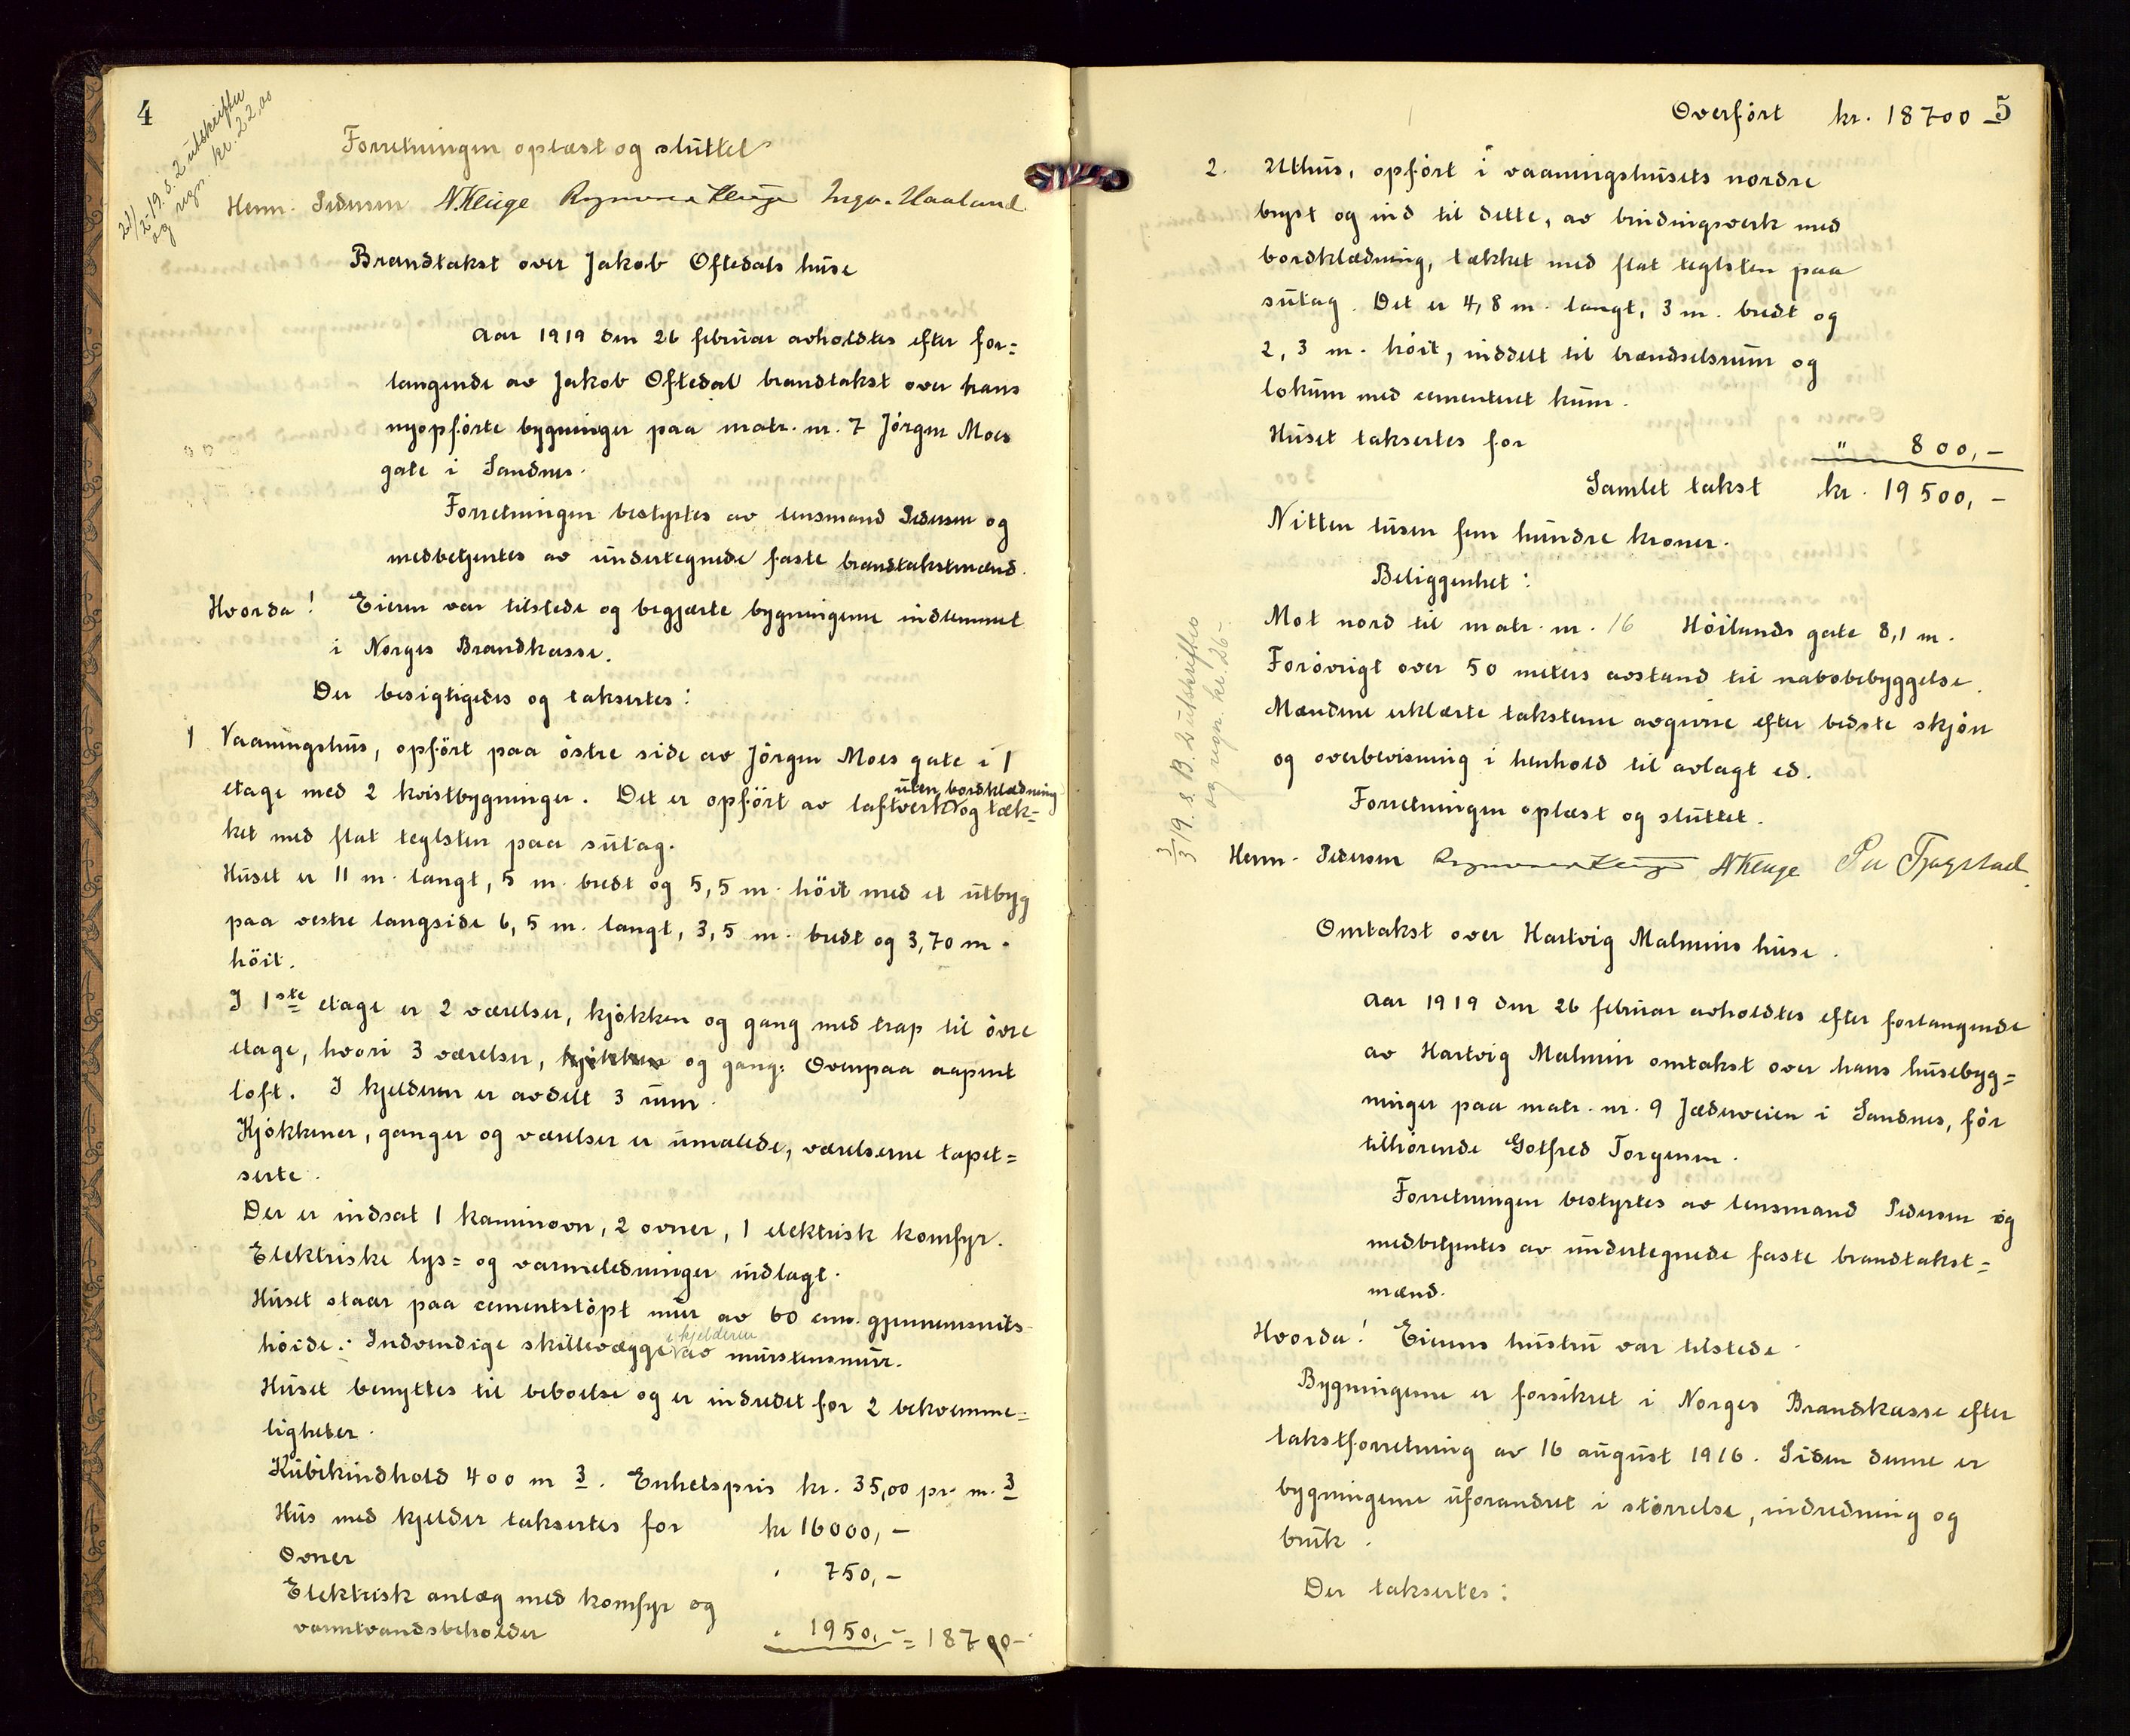 4
21/2-19. s. 2 utskrifter
og regn. kr. 22,00
Forretningen oplæst og sluttet
Henn. Pedersen N Kluge Ingv. Haaland
Brandtakst over Jakob Oftedals huse
Aar 1919 den 26 februar avholdtes efter for=
langende av Jakob Oftedal brandtakst over hans
nyopførte bygninger paa matr. nr. 7 Jørgen Moes
gate i Sandnes.
Forretningen bestyrtes av lensmand Pedersen og
medbetjentes av undertegnede faste brandtakstmænd.
Hvorda! Eieren var tilstede og begjærte bygningerne indlemmet
i Norges Brandkasse.
Der besigtigedes og taksertes:
1 Vaaningshus, opført paa østre side av Jørgen Moes gate i 1
etage med 2 kvistbygninger. Det er opført av laftverk uten bordklædning og tæk=
ket med flat teglsten paa sutag.
Huset er 11 m. langt, 5 m. bredt og 5,5 m. höit med et utbyg
paa vestre langside 6,5 m. langt, 3,5 m. bredt og 3,70 m.
höit.
I 1ste etage er 2 værelser, kjøkken og gang med trap til övre
etage, hvori 3 værelser, kjøkken og gang. Ovenpaa aapent
loft. I kjelderen er avdelt 3 rum.
Kjøkkener, ganger og værelser er umalede, værelserne tapet=
serte.
Der er indsat 1 kaminovn, 2 ovner, 1 elektrisk komfyr.
Elektriske lys= og varmeledninger indlagt.
Huset staar paa cementstöpt mur av 60 cm. gjennemsnits
höide. Indvendige skillevægge i kjelderen av murstensmur.
Huset benyttes til beboelse og er indredet for 2 bekvemme=
ligheter.
Kubikindhold 400 m 3. Enhetspris kr. 35,00 pr. m. 3
Hus med kjelder taksertes for kr 16000,-
Ovner " 750,-
Elektrisk anlæg med komfyr og
varmtvandsbeholder " 1950,- = 18700-
Overført kr. 18700 5
2. Uthus, opført i vaaningshusets nordre
bryst og ind til dette, av bindingsverk med
bordklædning, tækket med flat teglsten paa
sutag. Det er 4,8 m. langt, 3 m. bredt og
2,3 m. höit, inddelt til brændselsrum og
lokum med cementeret kum.
Huset taksertes for " 800,-
Samlet takst kr. 19500,-
Nitten tusen fem hundre kroner.
Beliggenhet:
Mot nord til matr. nr. 16 Höilands gate 8,1 m.
Forøvrigt over 50 meters avstand til nabobebyggelse.
Mændene erklærte taksterne avgivne efter bedste skjön
og overbevisning i henhold til avlagt ed.
Forretningen oplæst og sluttet.
3/3 19. s. B. 2 utskrifter
og regn. kr. 26,-
Henn. Pedersen N Kluge Per Tjagstad
Omtakst over Hartvig Malmins huse.
Aar 1919 den 26 februar avholdtes efter forlangende
av Hartvig Malmin omtakst over hans husebyg=
ninger paa matr. nr. 9 Jæderveien i Sandnes, för
tilhørende Gotfred Torgersen.
Forretningen bestyrtes av lensmand Pedersen og
medbetjentes av undertegnede faste brandtakst=
mænd.
Hvorda! Eierens hustru var tilstede.
Bygningerne er forsikret i Norges Brandkasse efter
takstforretning av 16 august 1916. Siden denne er
bygningerne uforandret i störrelse, indredning og
bruk.
Der taksertes: